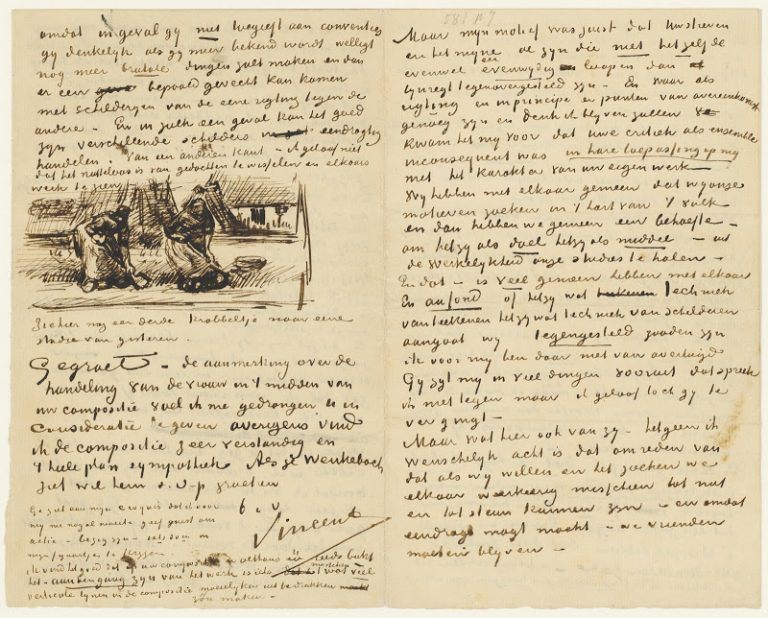 omdat in geval gy niet toegeeft aan conventies
gy denkelyk als gy meer bekend wordt welligt
nog meer brutale dingen zult maken en dan
er een bepaald gevecht kan komen
met schilders van de eene rigting tegen de
andere – En in zulk een geval kan het goed
zyn verschillende schilders eendragtig
handelen. Van een anderen kant – ik geloof niet
dat het nutteloos is van gedachten te wisselen en elkaars
werk te zien
Ziehier nog een derde krabbeltje naar eene
studie van gisteren.
Gegroet – de aanmerking over de
handeling van de vrouw in 't midden van
uw compositie voel ik me gedrongen U in
consideratie te geven overigens vind
ik de compositie zeer verstandig en
't heele plan sympathiek Als ge Wenkebach
ziet wil hem s.v.p groeten
Ge ziet aan myne croquis dat ik voor
my me nogal moeite geef juist om
actie – bezig zyn – iets doen in
myn figuurtjes te leggen.
t. à. v
Vincent
ik vind het goed dat in uw compositie althans iets bukt
het aan den gang zyn van het werk is iets wat veel
verticale lynen in de compositie moeielyker uit te drukken
zou maken –
581 R 7
Maar myn motief was juist dat Uw streven
en het myne al zyn die niet het zelfde
evenwel een evenwydig loop en dan
lynregt tegenovergesteld zyn – En waar als
rigting en in principe er punten van overeenkomst
genoeg zyn en denk ik blyven zullen
kwam het my voor dat uwe critiek als ensemble
inconsequent was in hare toepassing op my
met het karakter van uw eigen werk –
Wy hebben met elkaar gemeen dat wy onze
motieven zoeken in 't hart van 't volk
en dan hebben we gemeen een behoefte –
om hetzy als doel hetzy als middel – uit
de werkelykheid onze studies te halen –
En dat – is veel gemeen hebben met elkaar
En au fond of hetzy wat techniek
van teekenen hetzy wat techniek van schilderen
aangaat wy tegengesteld zouden zyn
ik voor my ben daar niet van overtuigd
Gy zyt my in veel dingen vooruit dat spreek
ik niet tegen maar ik geloof toch gy te
ver gingt –
Maar wat hier ook van zy – hetgeen ik
wenschelyk acht is dat om reden van
dat als wy willen en het zoeken we
elkaar weerkeerig misschien tot nut
en tot steun kunnen zyn – en omdat
eendragt magt maakt – we vrienden
moeten blyven –